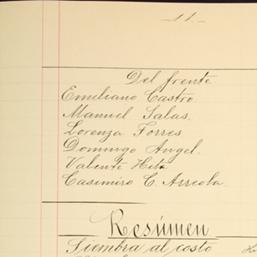 11.
Del frente
Emiliano Castro.
Manuel Salas.
Lorenza Torres
Domingo Angel.
Valente Hita
Casimiro C. Arreola.
Resúmen
Siembra al costo